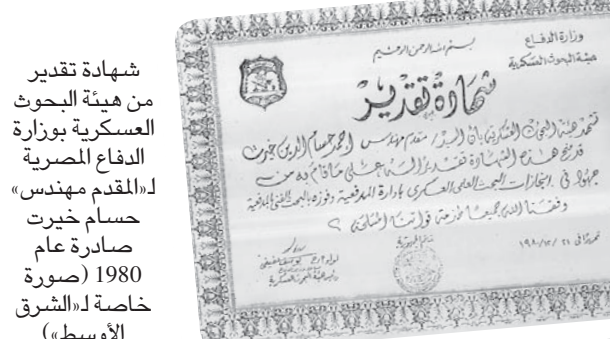 شهادة تقدير
من هيئة البحوث
العسكرية بوزارة
الدفاع المصرية
لـ«المقدم مهندس»
حسام خيرت
صادرة عام
1980 (صورة
خاصة لـ«الشرق
الأوسط»)
وزارة الدفاع
هيئة البحوث العسكرية
بسم الله الرحمن الرحيم
شهادة تقدير
تشهد هيئة البحوث العسكرية بأن السيد / مقدم مهندس احمد حسام الدين خيرت
قد منح هذه الشهادة تقديرا لسيادته على ما قام به من
جهود في انجازات البحث العلمى العسكرى بإدارة المدفعية وفوزه بالبحث الفنى للمدفعية
وفقنا الله جميعا لخدمة قواتنا المسلحة ؟
تحريرا فى ٢١ /١٢/ ١٩٨٠
لواء أ.ح